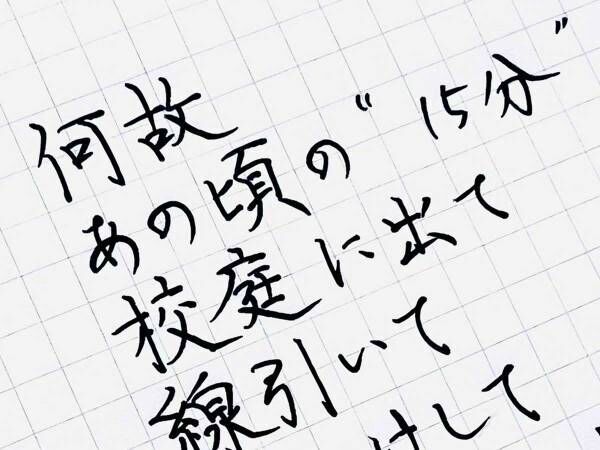 何故
あの頃の“15分”
校庭に出て
線引いて
けして